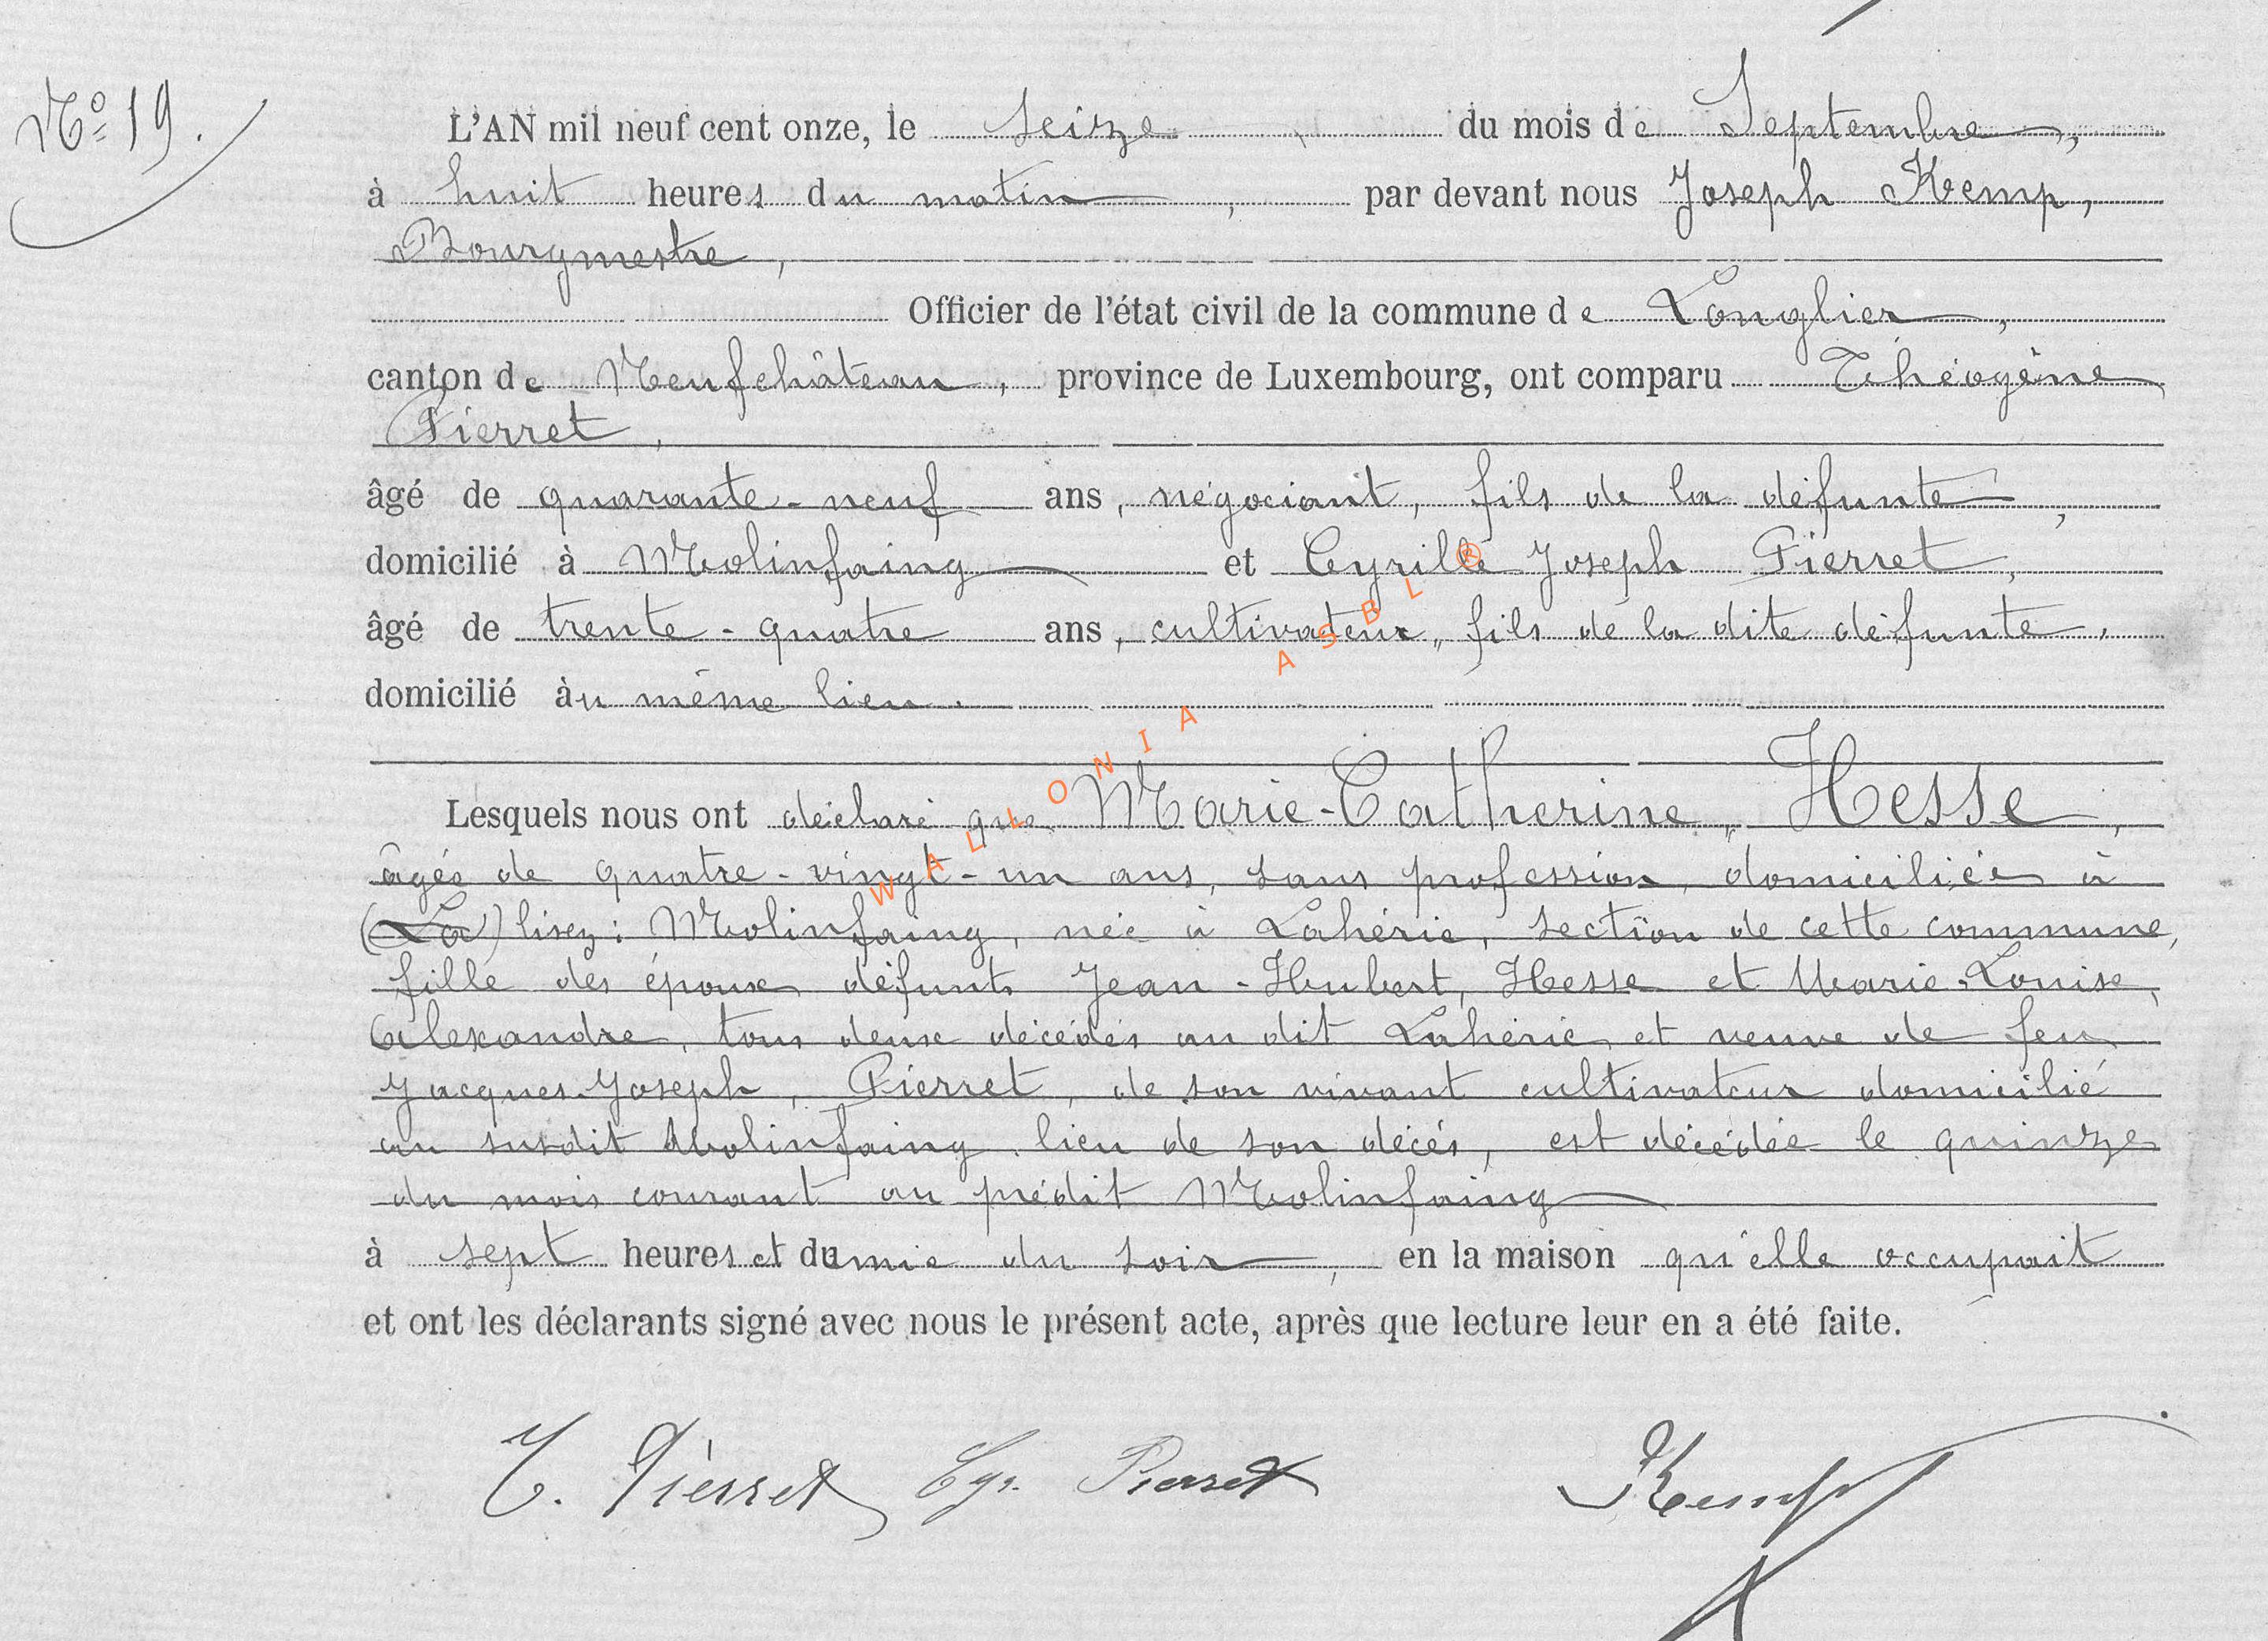 Nº 19.
L'AN mil neuf cent onze, le seize du mois de Septembre,
à huit heures du matin, par devant nous Joseph Kemp,
Bourgmestre,
Officier de l'état civil de la commune de Longlier,
canton de Neufchâteau, province de Luxembourg, ont comparu Théogène
Pierret,
âgé de quarante-neuf ans, négociant, fils de la défunte,
domicilié à Molinfaing et Cyrille Joseph Pierret,
âgé de trente-quatre ans, cultivateur, fils de la dite défunte,
domicilié àu même lieu.
Lesquels nous ont déclaré que Marie-Catherine, Hesse,
âgée de quatre-vingt-un ans, sans profession, domiciliée à
(La) lisez: Molinfaing, née à Lahérie, section de cette commune,
fille des époux défunts Jean-Hubert, Hesse et Marie-Louise,
Alexandre, tous deux décédés au dit Lahérie et veuve de feu
Jacques-Joseph, Pierret, de son vivant cultivateur domicilié
au susdit Molinfaing, lieu de son décés, est décédée le quinze
du mois courant au prédit Molinfaing
à sept heures et demie du soir, en la maison qu'elle occupait
et ont les déclarants signé avec nous le présent acte, après que lecture leur en a été faite.
T. Pierret Cyr. Pierret Kemp
WALLONIA ASBL ®